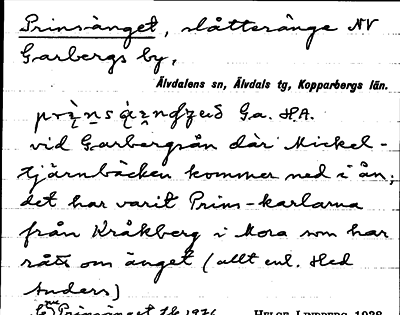 Prinsänget, slåtteränge NV
Garbergs by,
Älvdalens sn, Älvdals tg, Kopparbergs län.
Ga. HA.
vid Garbergsån där Mickel-
tjärnbäcken kommer ned i ån;
det har varit Prins-karlarna
från Kråkberg i Mora som har
rått om änget (allt enl. Hed
Anders)
Prinsänget
HELGE LINDBERG 1928